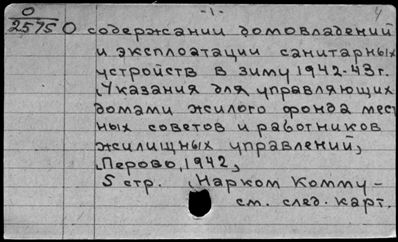 -1- 4
О
2575
О содержании домовладений
и эксплоатации санитарных
устройств в зиму 1942-43г.
Указания для управляющих
домами жилого фонда мест
ных советов и работников
жилищных управлений,
Перово, 1942,
5 стр. Нарком Комму-
см. след. карт.